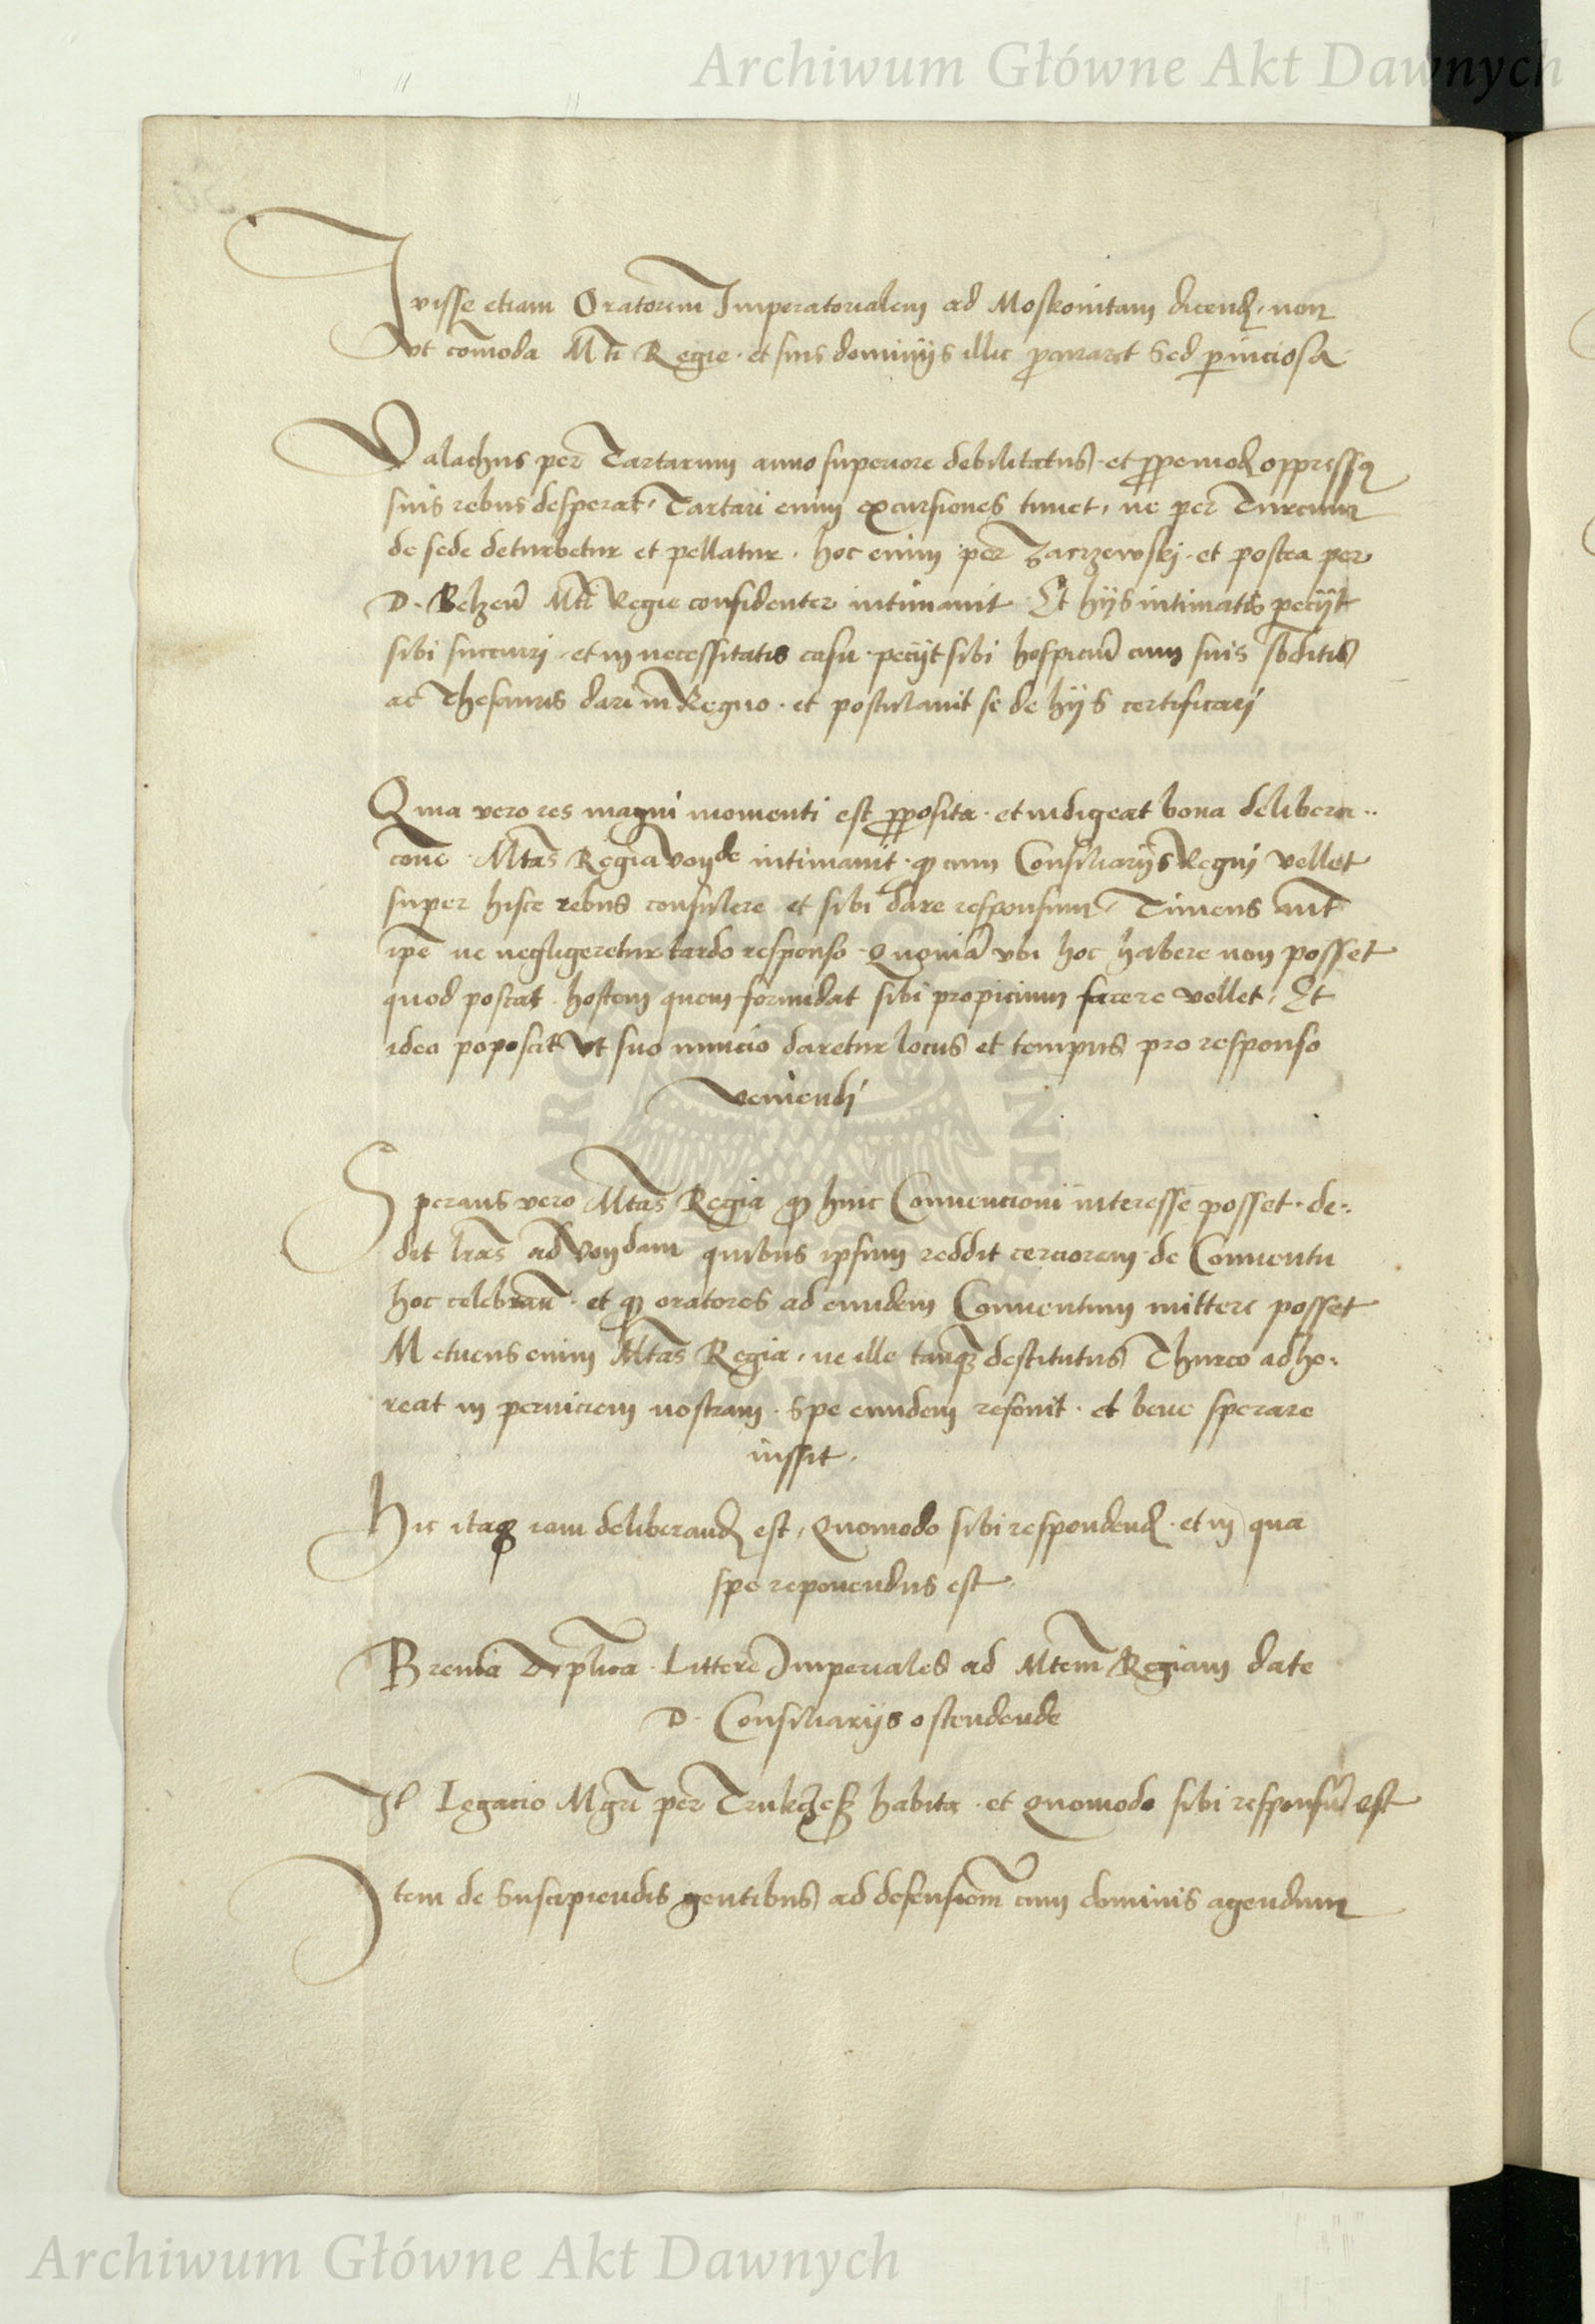 Archiwum Główne Akt Dawnych
Ivisse etiam Oratorem Imperatorialem ad Moskouitam dicend. non
Vt com̄oda Mti Regie. et suis dominijs illic procuraret Sed perniciosa
Valachus per Tartarum anno superiore debilitatus. et propemod oppressus
suis rebus desperat, Tartari enim excursiones timet, ne per Turcum
de sede deturbetur et pellatur. hoc enim per Zaczewskj. et postea per
D. Belzen̄ Mti Regie confidenter intimauit. Et hijs intimatis pecijt
sibi succurrj. et in necessitatis casu. pecijt sibi hospiciū cum suis sbditis
ac Thesauris dari in Regno. et postulauit se de hijs certificarj
Quia vero res magni momenti est proposita. et indigeat bona delibera..
cone. Mtas Regia voyde intimauit. q̄ cum Consiliarijs Regnj vellet
super hisce rebus consulere et sibi dare responsum. Timens aut̄
ip̄e ne negligeretur tardo responso. Quoniā vbi hoc habere non posset
quod postat. hostem quem formidat sibi propicium facere vellet, Et
ideo poposcit Vt suo nuncio daretur locus et tempus pro responso
veniendi
Sperans vero Mtas Regia q̄ huic Conuencioni interesse posset. de:
dit lr̄as ad Voydam quibus ipsum reddit cerciorem de Conuentu
hoc celebran̄. et q̄ oratores ad eundem Conuentum mittere posset
Metuens enim Mtas Regia, ne ille tanq̄ destitutus Thurco adhe:
reat in perniciem nostram. Spe eundem refouit. et bene sperare
iussit.
Hic itaq iam deliberand est, Quomodo sibi respondend. et in qua
spe reponendus est.
Breuia Ap̄lica. Littere Imperiales ad Mtem Regiam date
D. Consiliarijs ostendende
It Legacio Mgri per habita. et Quomodo sibi responsū est
Item de Suscipiendis gentibus ad defensiom̄ cum dominis agendum
Archiwum Główne Akt Dawnych